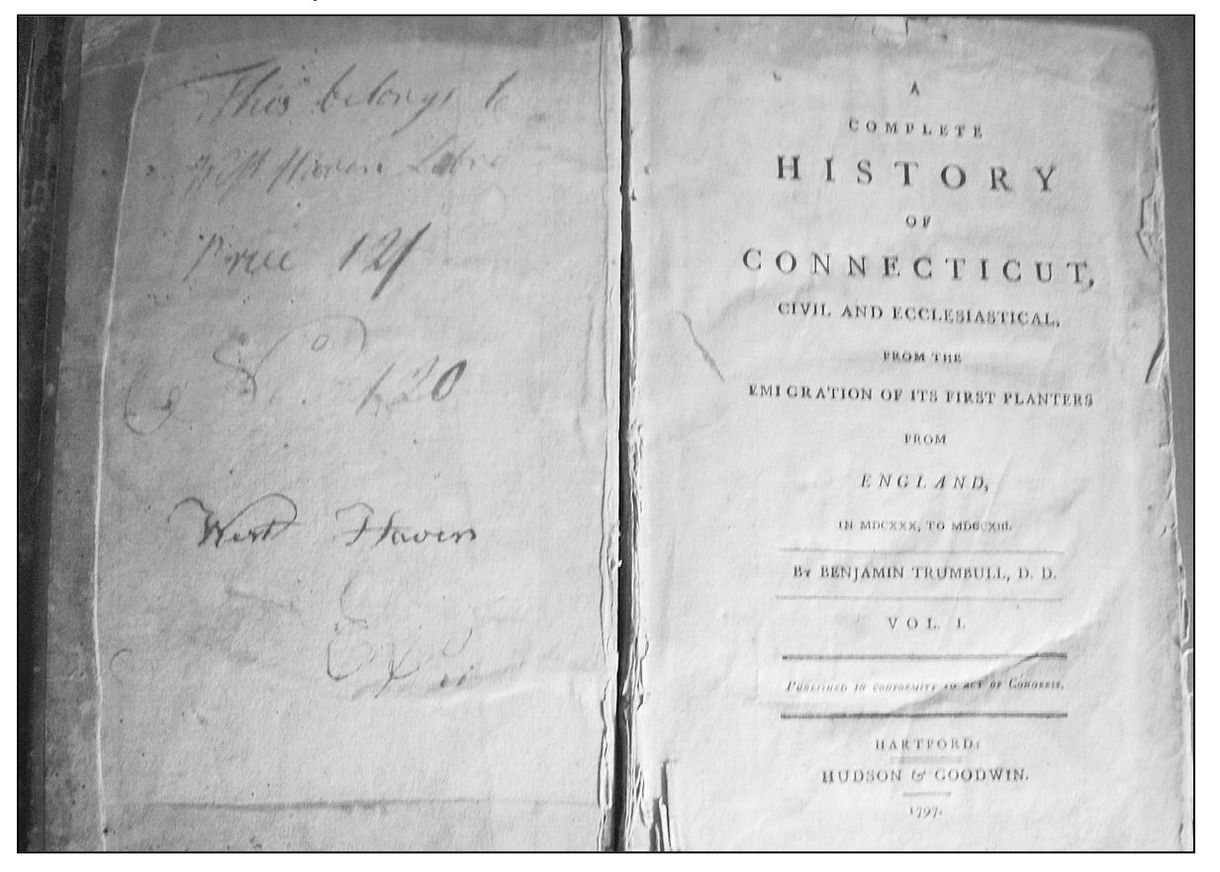 This belongs to
West Haven
Price 12/
No. 120
West Haven
A
COMPLETE
HISTORY
OF
CONNECTICUT,
CIVIL AND ECCLESIASTICAL,
FROM THE
EMIGRATION OF ITS FIRST PLANTERS
FROM
ENGLAND,
IN MDCXXX, TO MDCCXIII.
By BENJAMIN TRUMBULL, D. D.
VOL. I.
PUBLISHED IN CONFORMITY TO ACT OF CONGRESS.
HARTFORD:
HUDSON & GOODWIN.
1797.